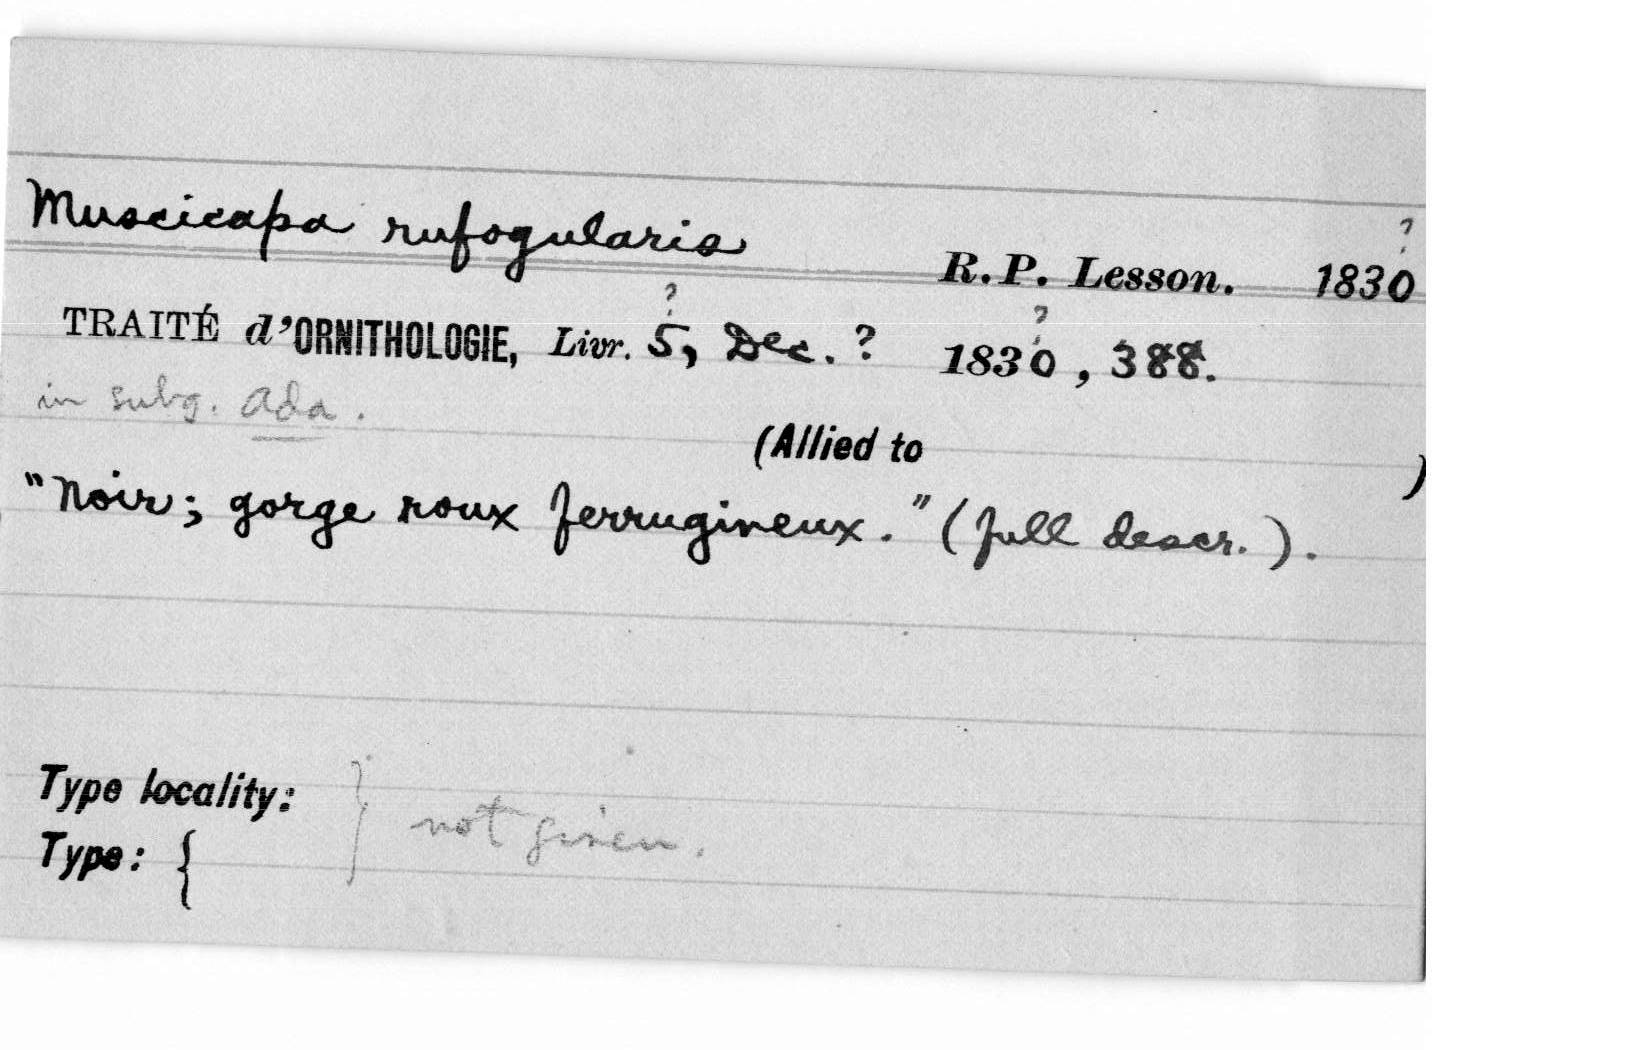 Muscicapa rufogularis
?
R.P. Lesson. 1830
? ?
TRAITÉ d'ORNITHOLOGIE, Livr. 5, Dec. ? 1830, 388.
in subg. Ada.
(Allied to )
"Noir; gorge roux ferrugineux." (full descr.).
Type locality: } not given.
Type: {